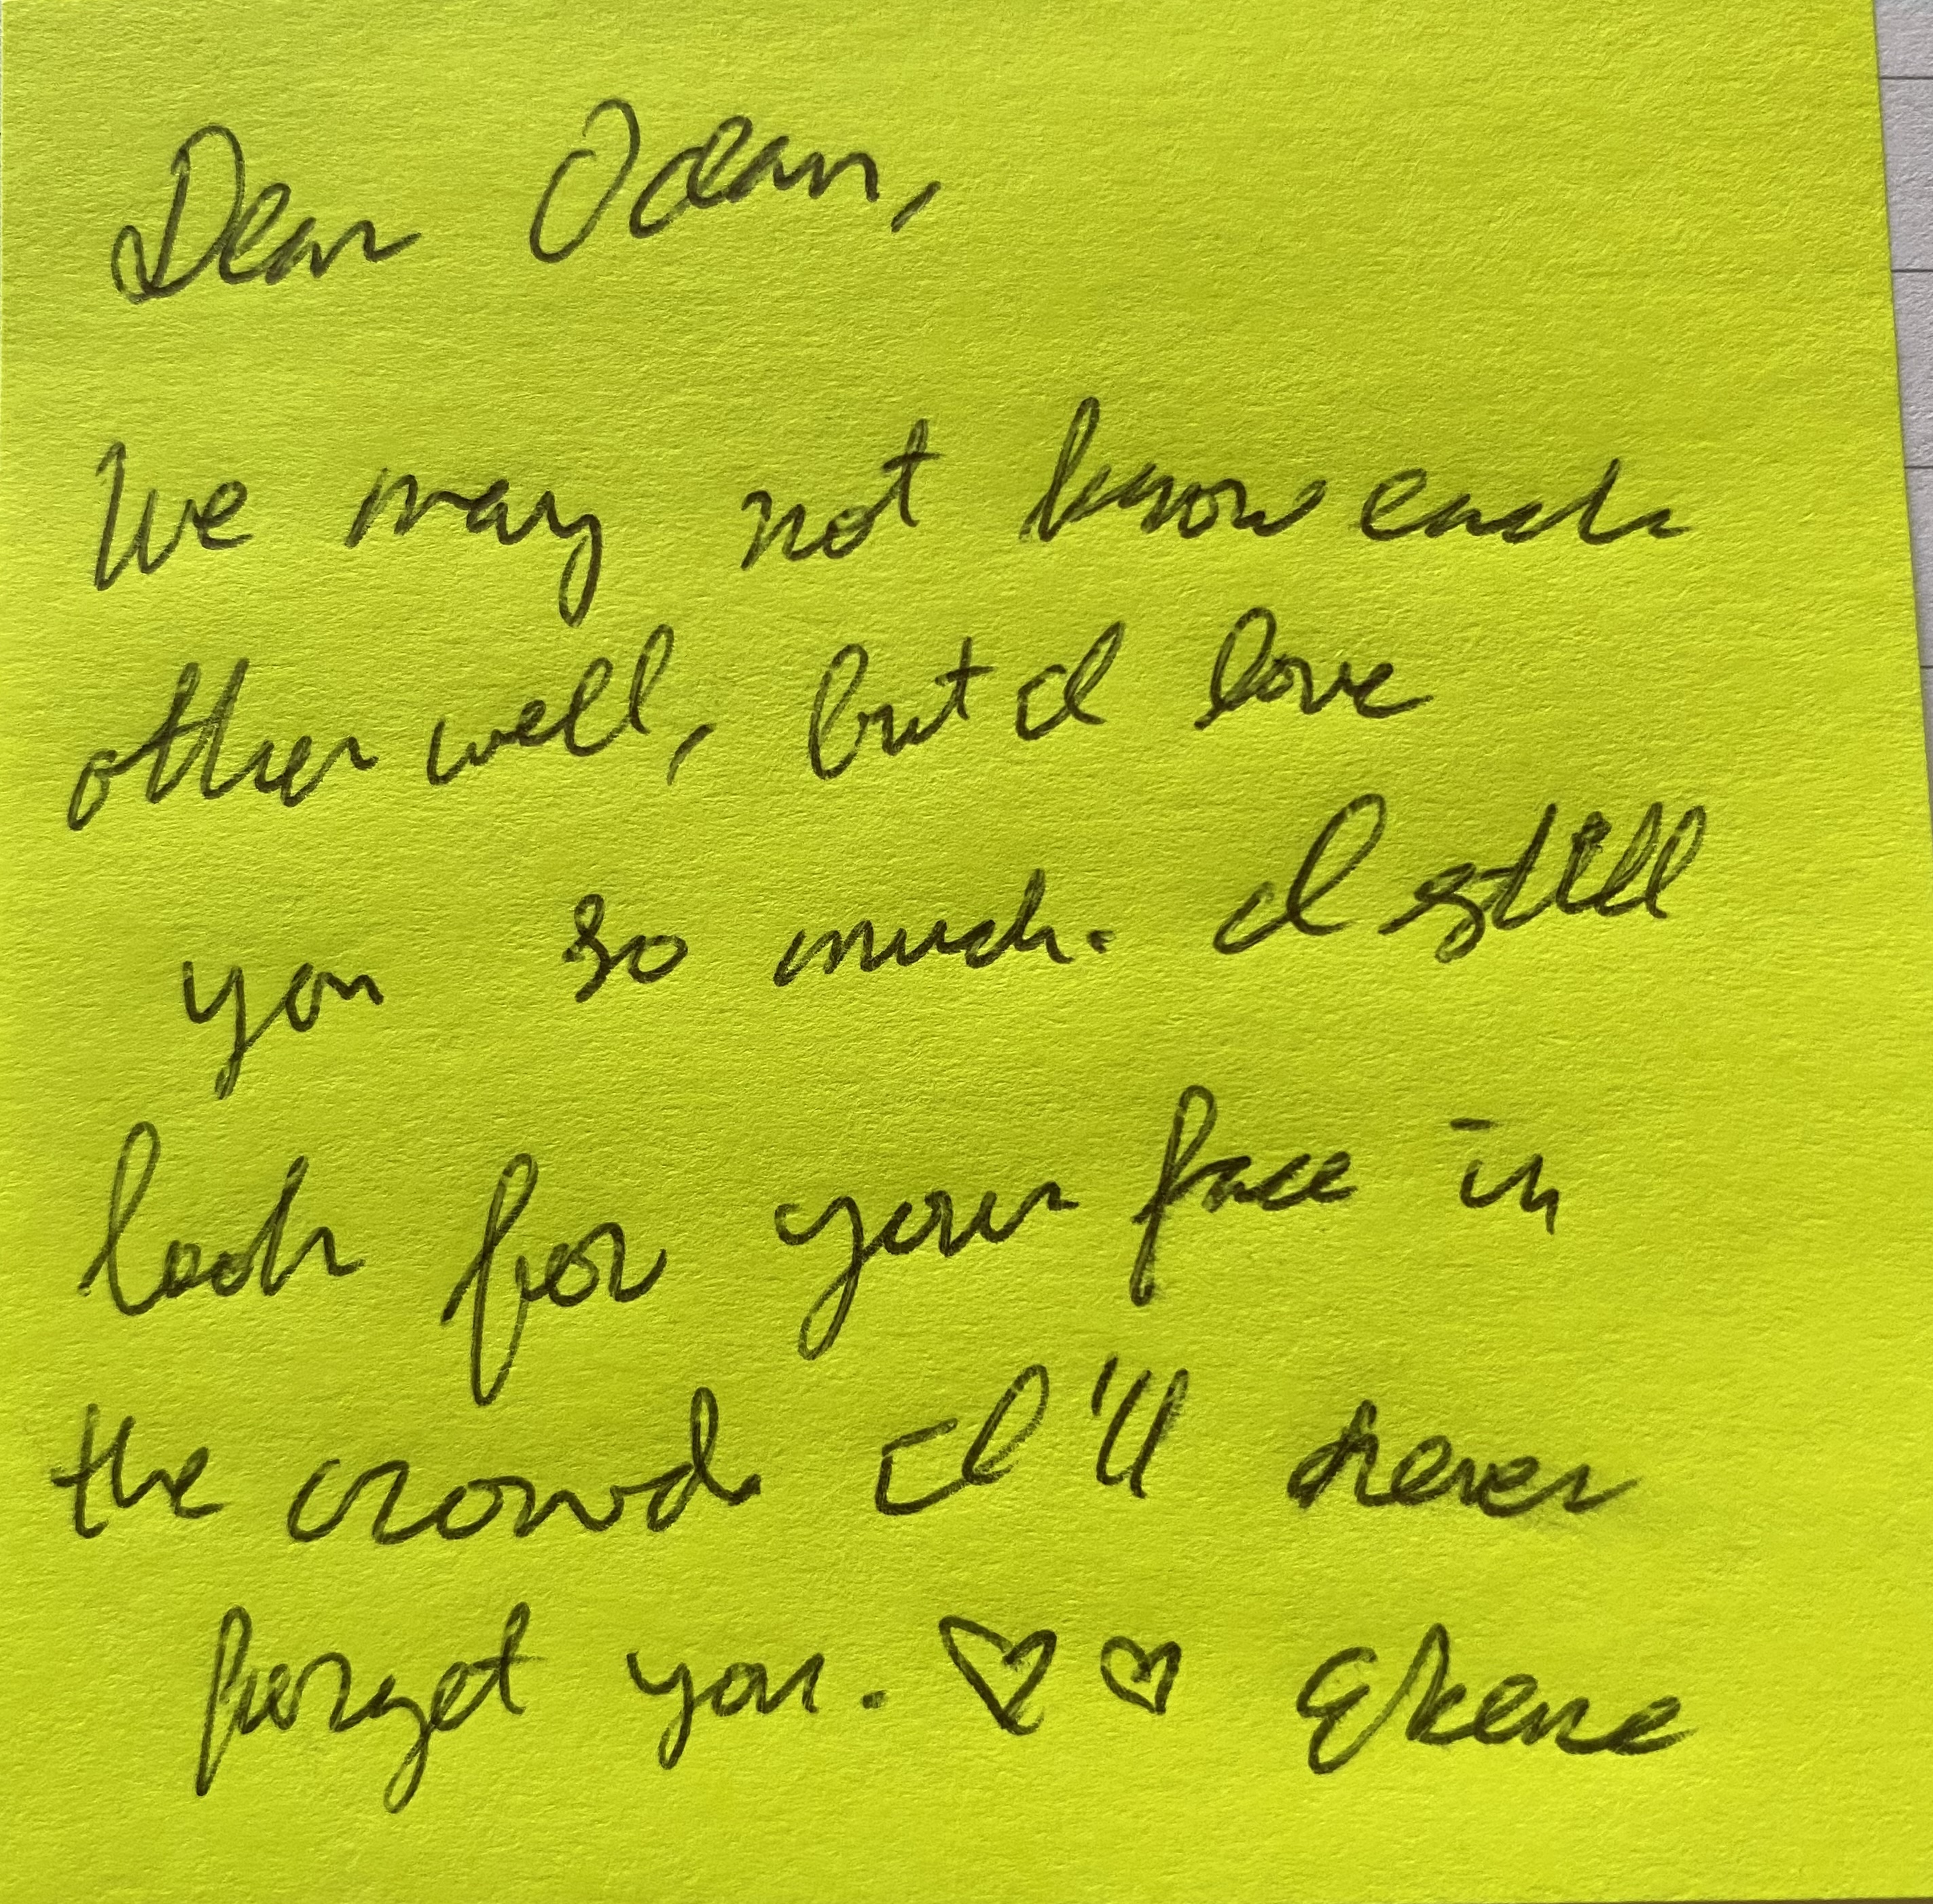 Dear Odean,
We may not know each
other well, but I love
you so much. I still
look for your face in
the crowd. I'll never
forget you. ♡♡ Ekene